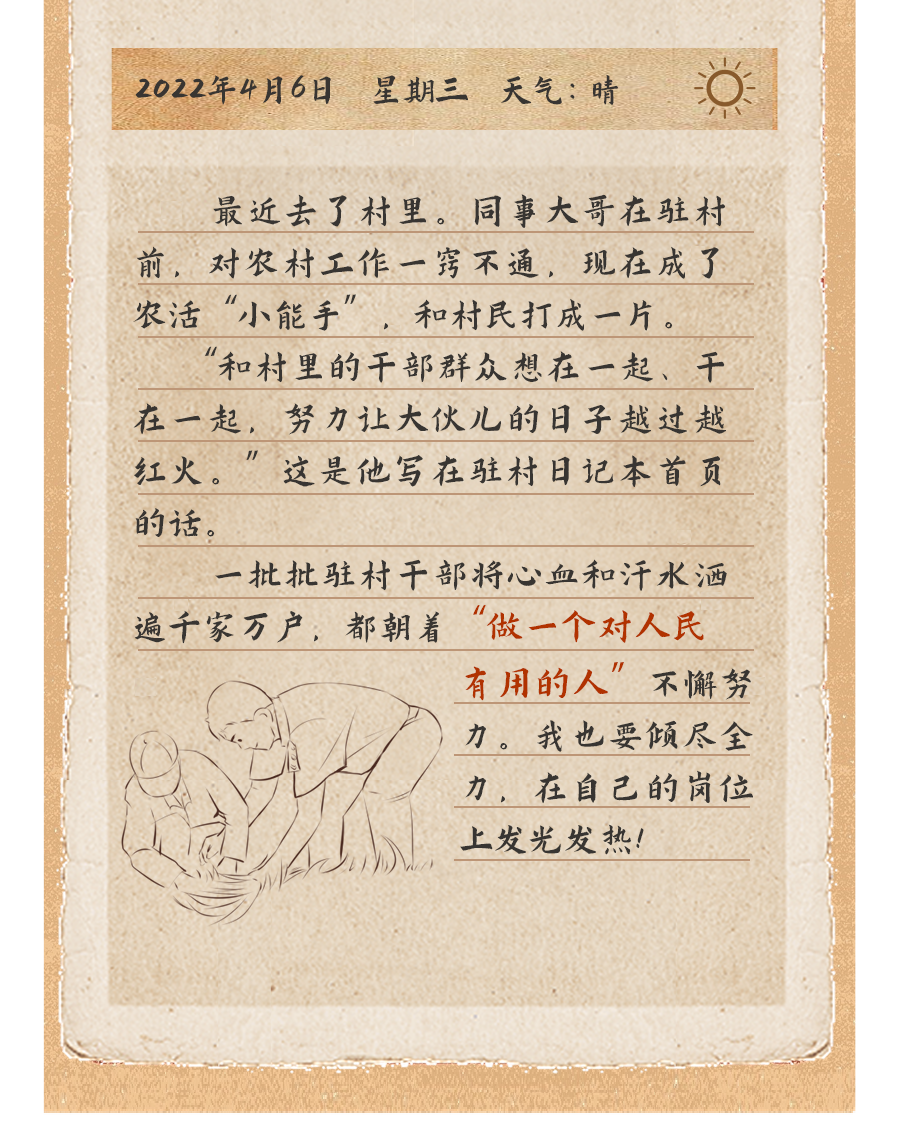 2022年4月6日 星期三 天气：晴
最近去了村里。同事大哥在驻村
前，对农村工作一窍不通，现在成了
农活“小能手”，和村民打成一片。
“和村里的干部群众想在一起、干
在一起，努力让大伙儿的日子越过越
红火。”这是他写在驻村日记本首页
的话。
一批批驻村干部将心血和汗水洒
遍千家万户，都朝着“做一个对人民
有用的人”不懈努
力。我也要倾尽全
力，在自己的岗位
上发光发热！